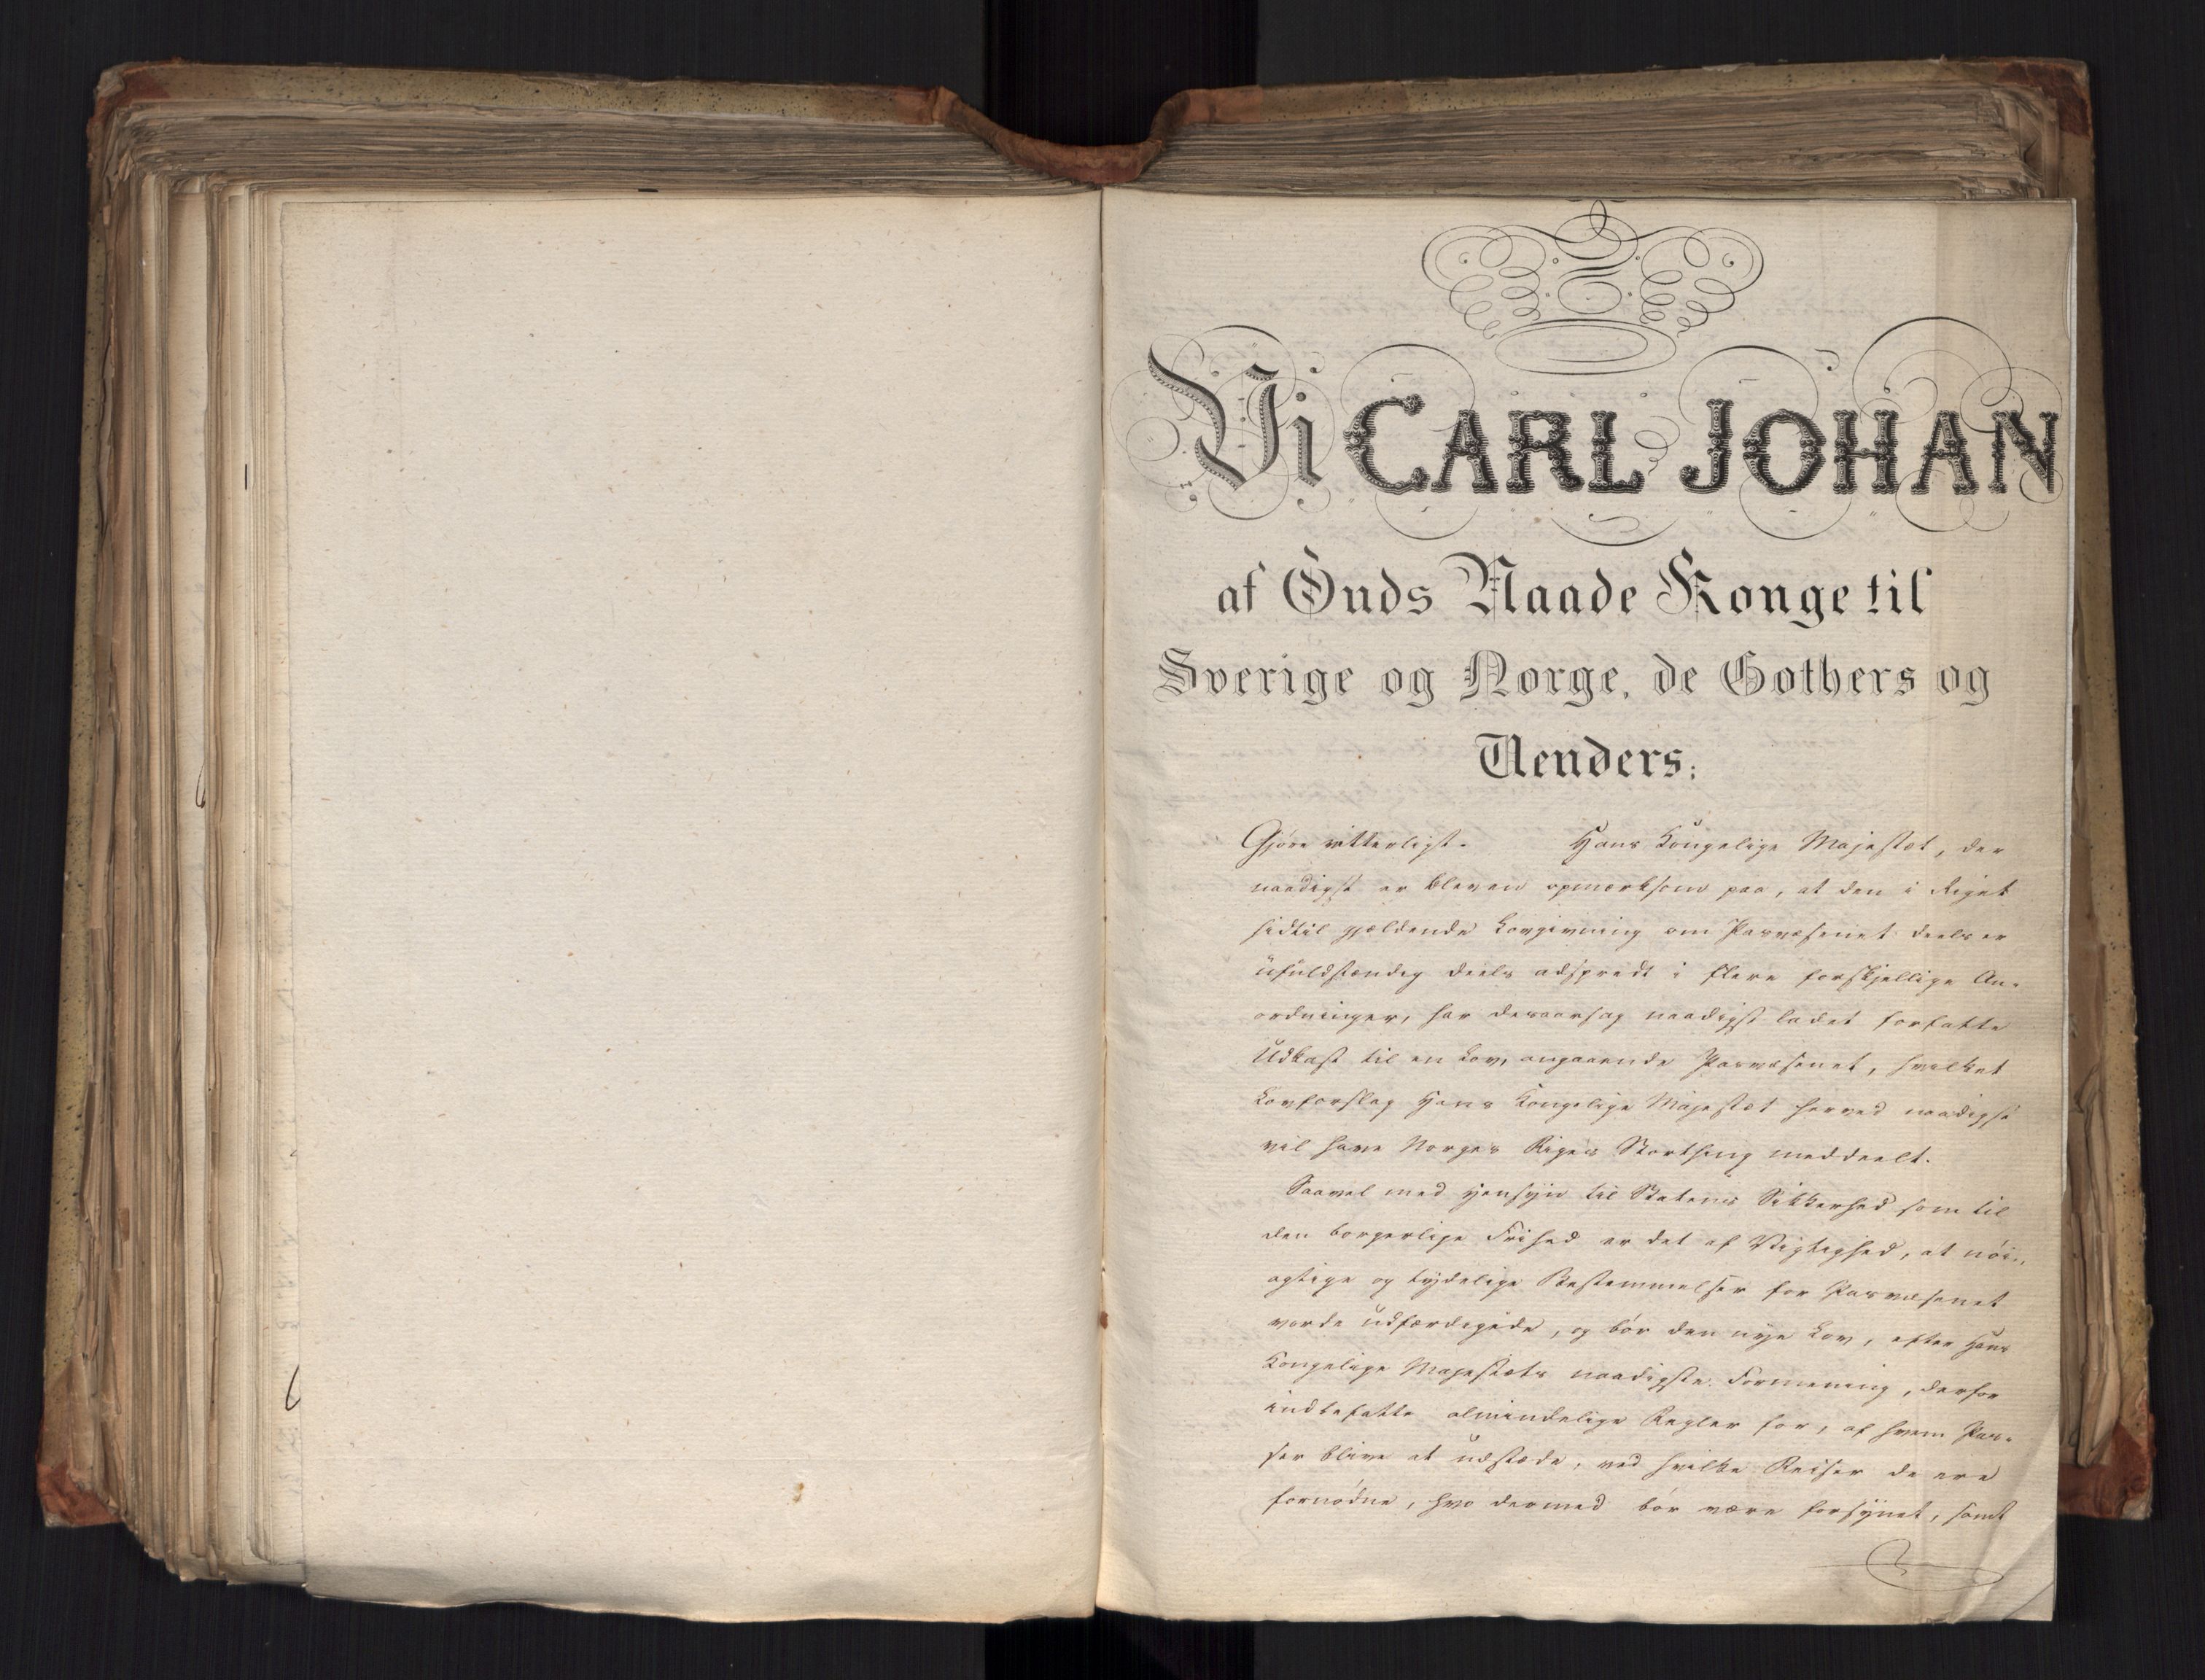 Vi CARL JOHAN
af Guds Naade Konge til
Sverige og Norge, de Gothers og
Venders;
Gjøre vitterligt. Hans Kongelige Majestæt, der
naadigst er bleven opmærksom paa, at den i Riget
hidtil gjældende Lovgivning om Pasvæsenet deels er
ufuldstændig deels adspredt i flere forskjellige An-
ordninger, har desaarsag naadigst ladet forfatte
Udkast til en Lov, angaaende Pasvæsenet, hvilket
Lovforslag Hans Kongelige Majestæt herved naadigst
vil have Norges Riges Storthing meddeelt.
Saavel med Hensyn til Statens Sikkerhed som til
den borgerlige Frihed er det af Vigtighed, at nøi-
agtige og tydelige Bestemmelser for Pasvæsenet
vorde udfærdigede, og bør den nye Lov, efter Hans
Kongelige Majestæts naadigste Formening, derfor
indbefatte almindelige Regler for, af hvem Pas-
ser blive at udstæde, ved hvilke Reiser de ere
fornødne, hvo dermed bør være forsynet, samt